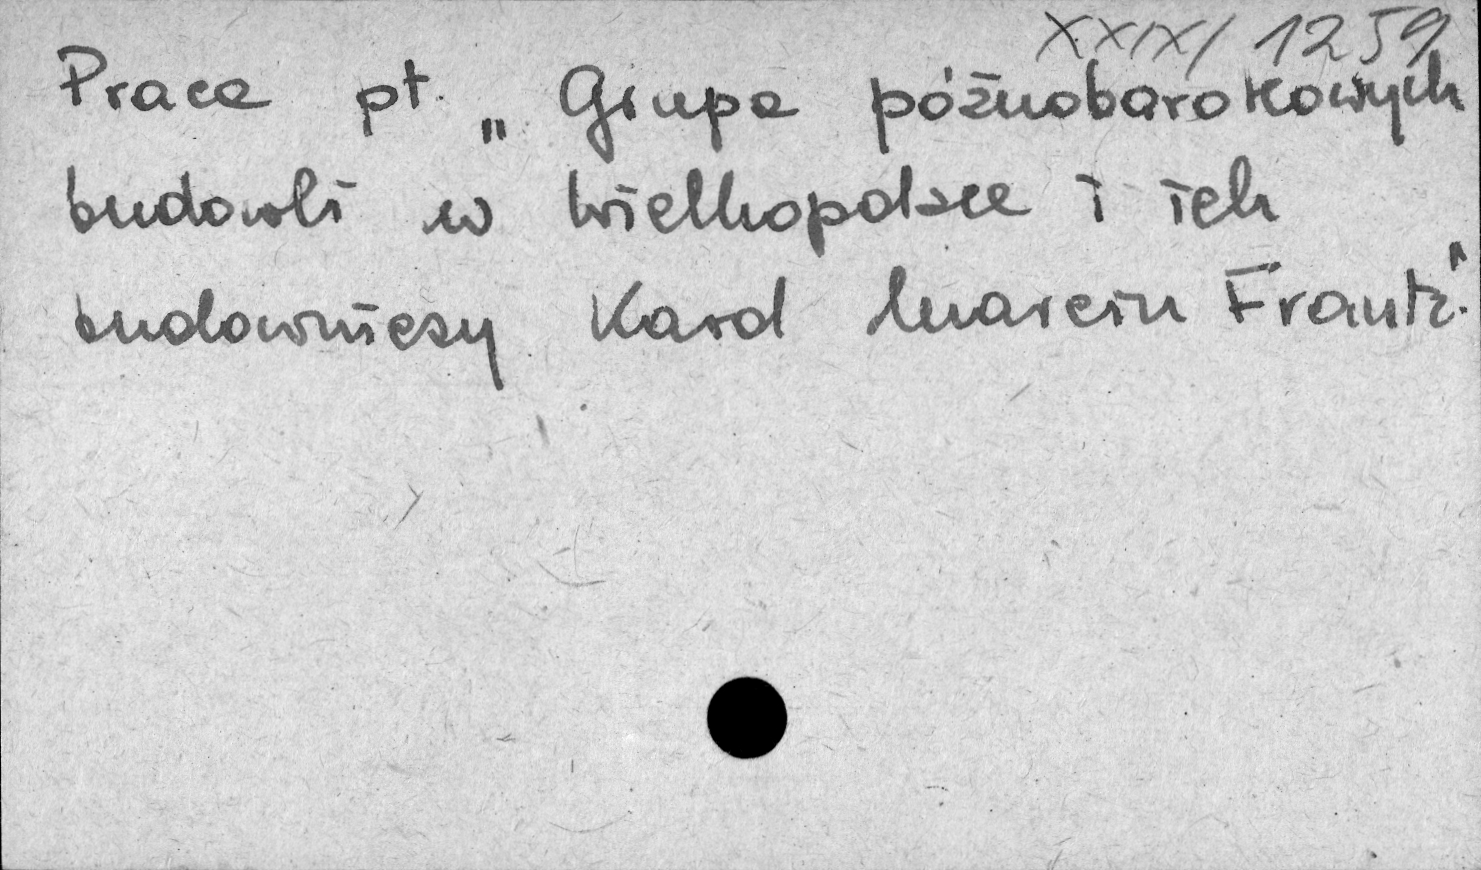 XXIX/1259
Praca pt. „Grupa późnobarokowych
budowli w Wielkopolsce i ich
budowniczy Karol Marcin Frantz."